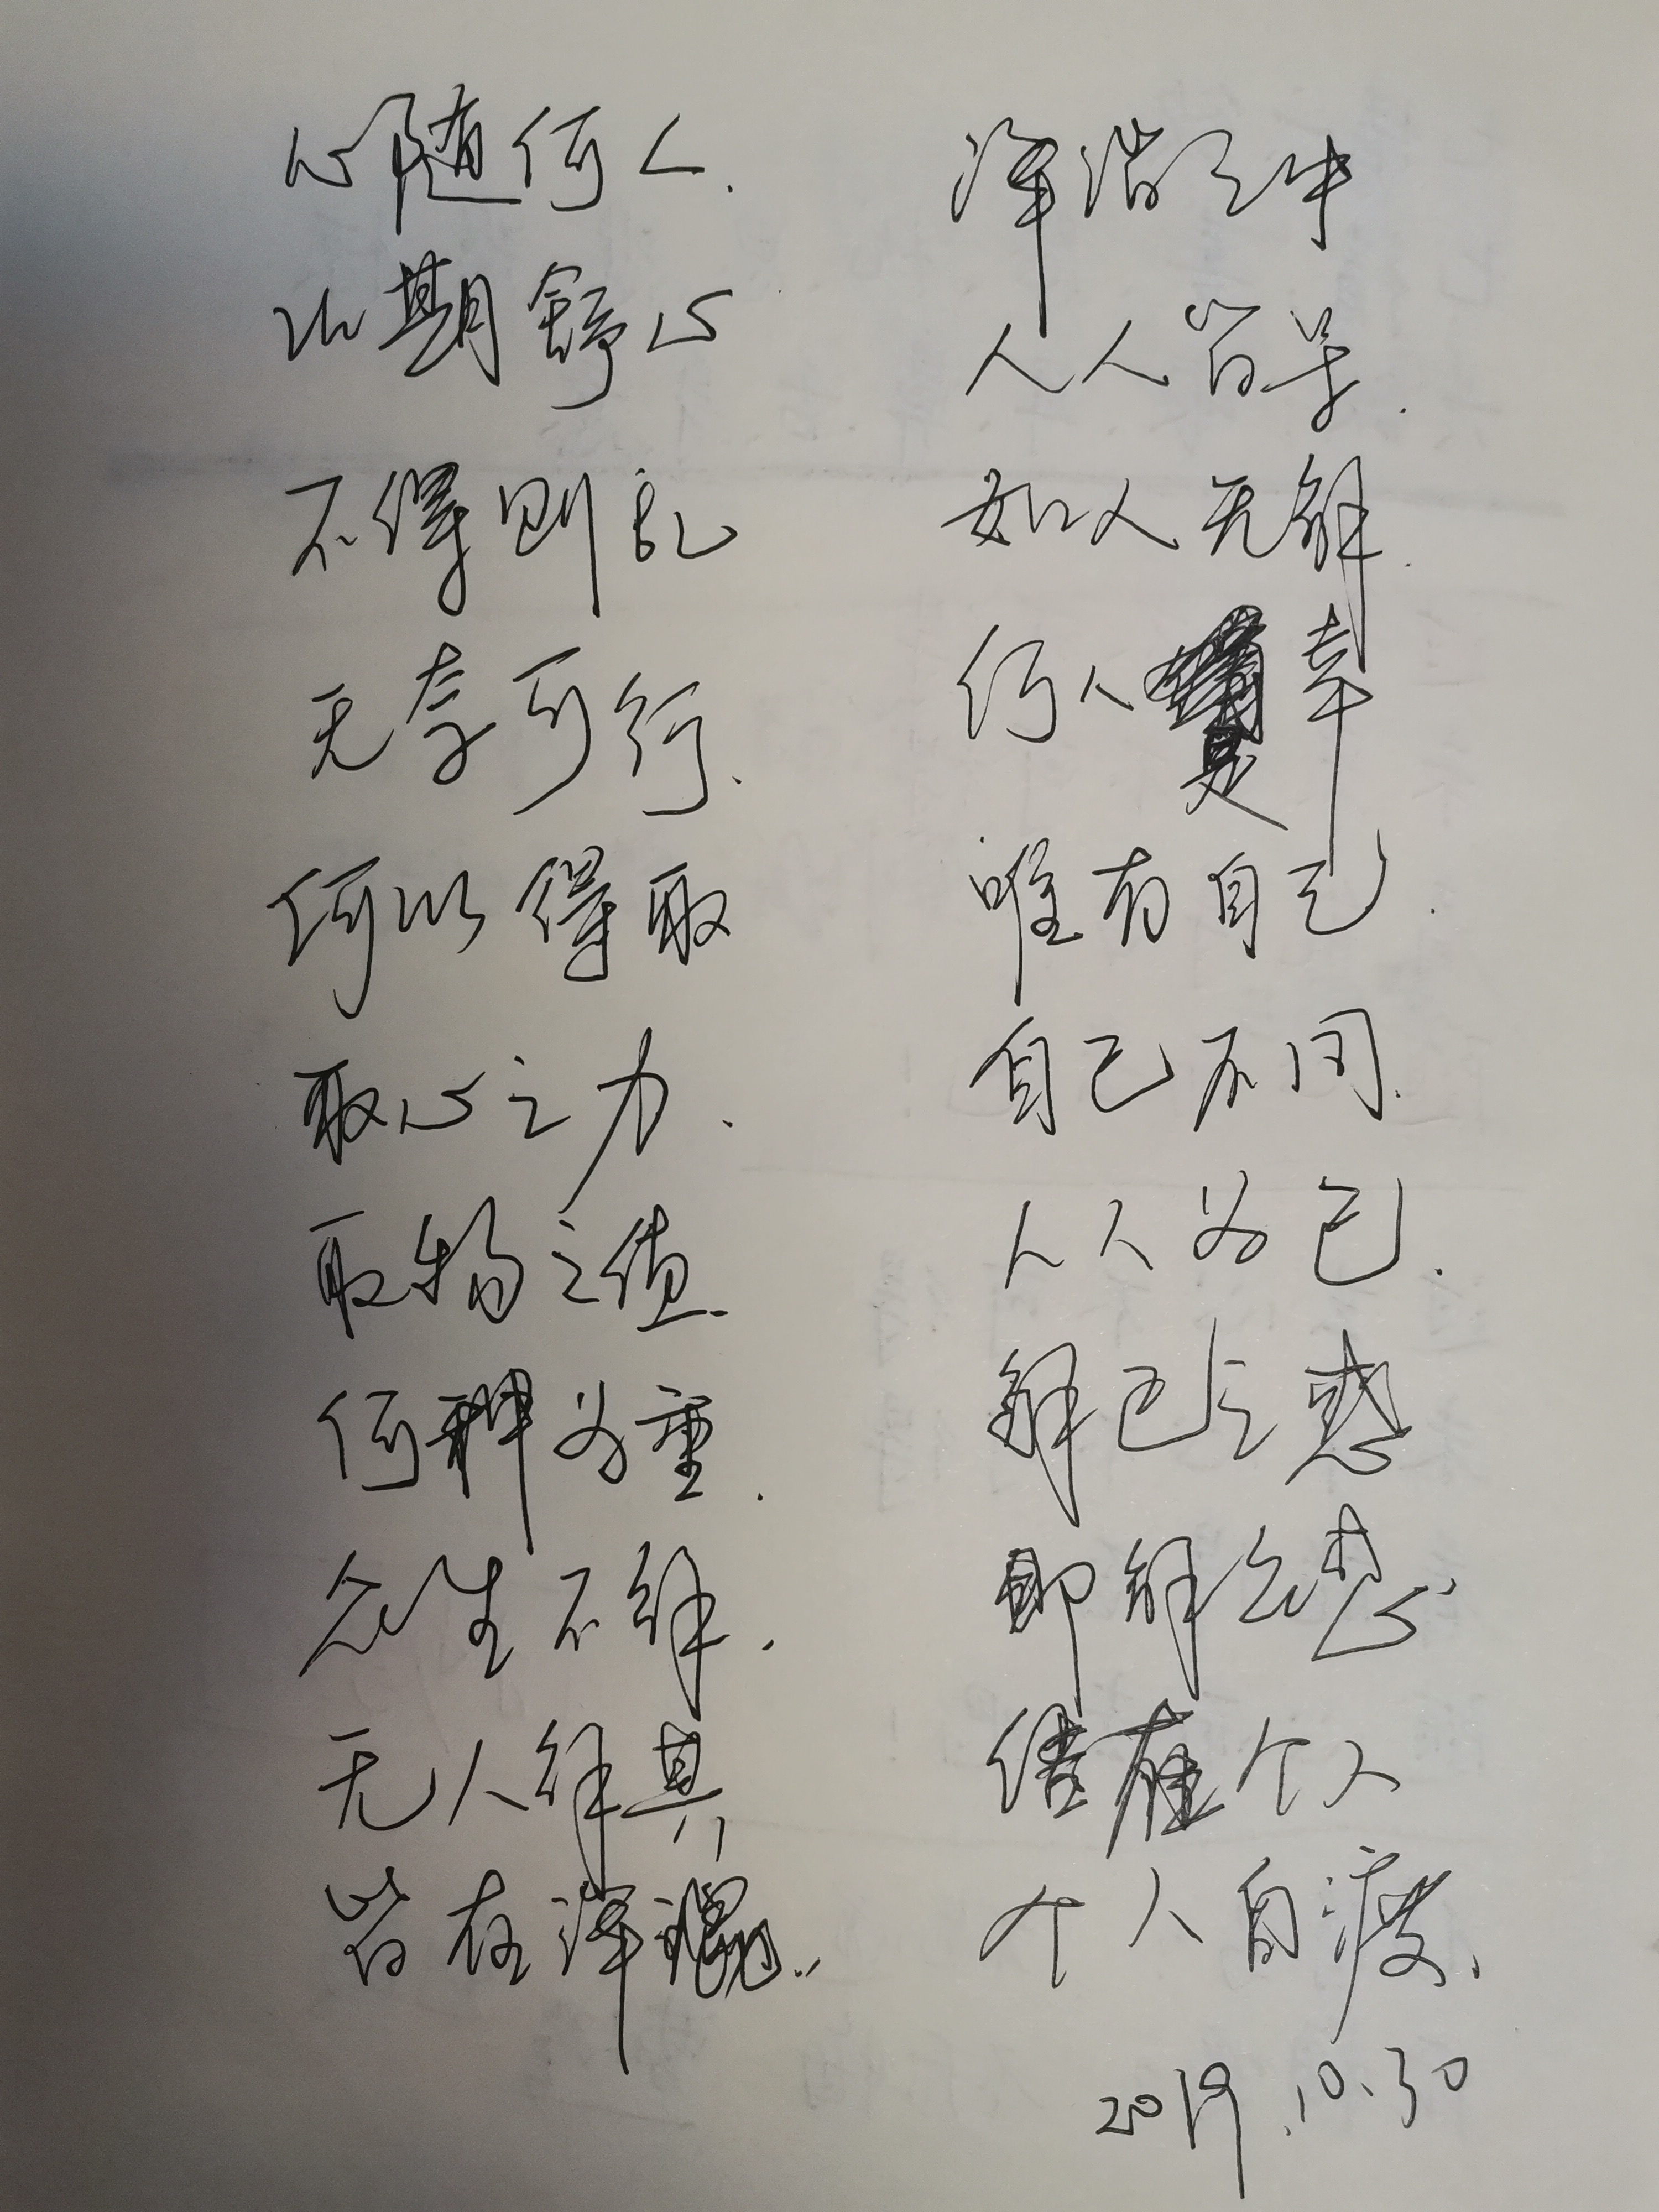 心随何人.
以期舒心
不得则乱
无存可行.
何以得取
取心之力.
取物之值.
何种为重.
众生不解.
无人解其
皆在浑混..
浑谐之中
人人皆子.
如人无解.
何人是幸
唯有自己.
自己不同.
人人为己.
解己之惑
即解众惑
结在个人
个人自渡.
2019.10.30